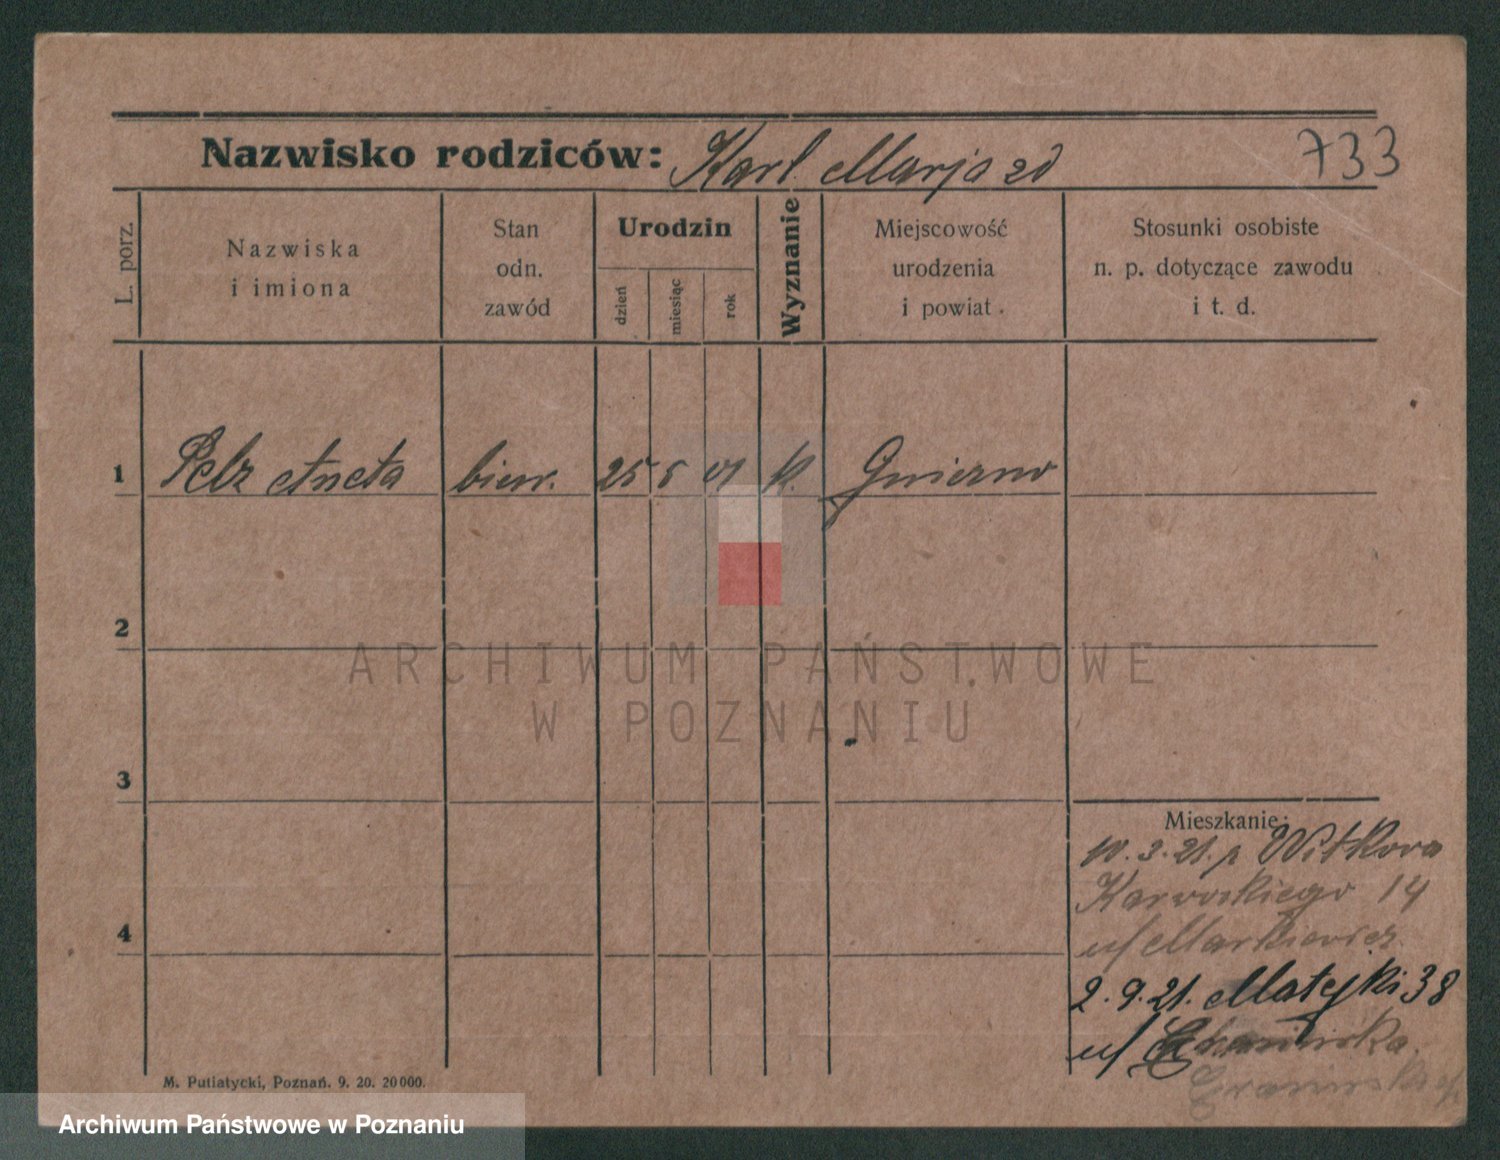 Nazwisko rodziców: Karl. Marja zd
733
L. porz.
Nazwiska
i imiona
Stan
odn.
zawód
Urodzin
dzień
miesiąc
rok
Wyznanie
Miejscowość
urodzenia
i powiat.
Stosunki osobiste
n. p. dotyczące zawodu
i t. d.
1 Pelz Aneta biur. 25 5 01 k. Gniezno
2
3
4
ARCHIWUM PAŃSTWOWE
W POZNANIU
Mieszkanie:
10.3.21. z Witkowa
14
u/ Markiewicz
2.9.21. Matejki 38
u/
M. Putiatycki, Poznań. 9. 20. 20000.
Archiwum Państwowe w Poznaniu